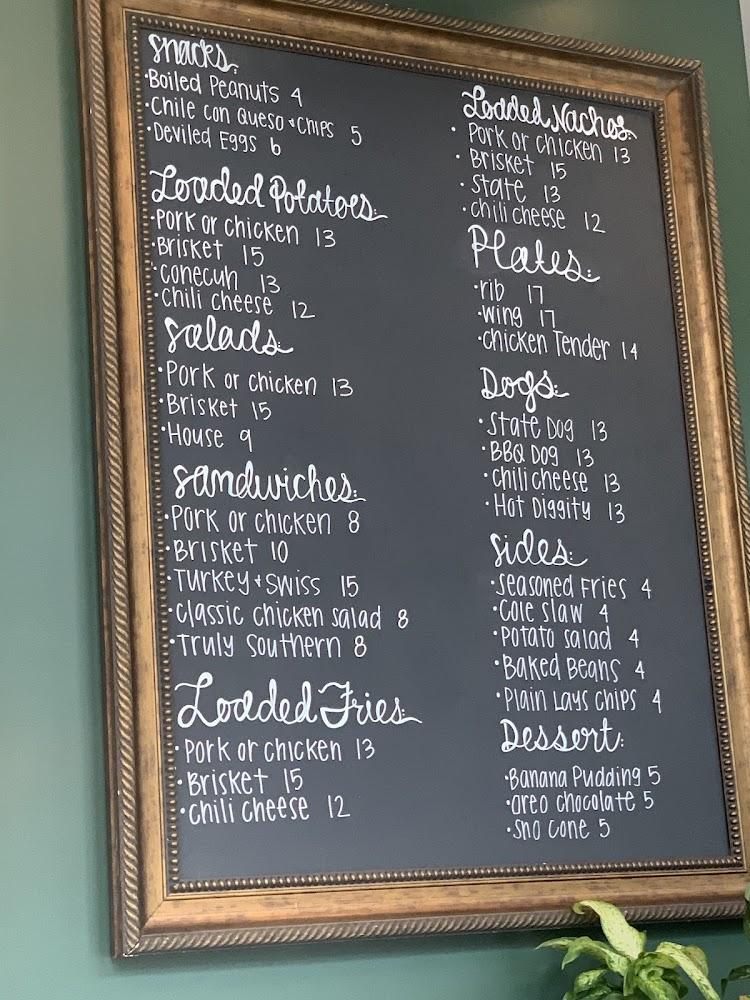 snacks:
·Boiled Peanuts 4
·Chile con Queso + Chips 5
·Deviled Eggs 6
Loaded Potatoes:
·Pork or chicken 13
·Brisket 15
·conecuh 13
·chili cheese 12
Salads
·Pork or chicken 13
·Brisket 15
·House 9
Sandwiches:
·Pork or chicken 8
·Brisket 10
·Turkey + Swiss 15
·Classic chicken salad 8
·Truly Southern 8
Loaded Fries:
·Pork or chicken 13
·Brisket 15
·chili cheese 12
Loaded Nachos:
·Pork or chicken 13
·Brisket 15
·State 13
·chili cheese 12
Plates:
·rib 17
·wing 17
·chicken Tender 14
Dogs:
·State Dog 13
·BBQ Dog 13
·chili cheese 13
·Hot Diggity 13
Sides:
·Seasoned Fries 4
·Cole Slaw 4
·Potato salad 4
·Baked Beans 4
·Plain Lays Chips 4
Dessert:
·Banana Pudding 5
·oreo chocolate 5
·Sno Cone 5